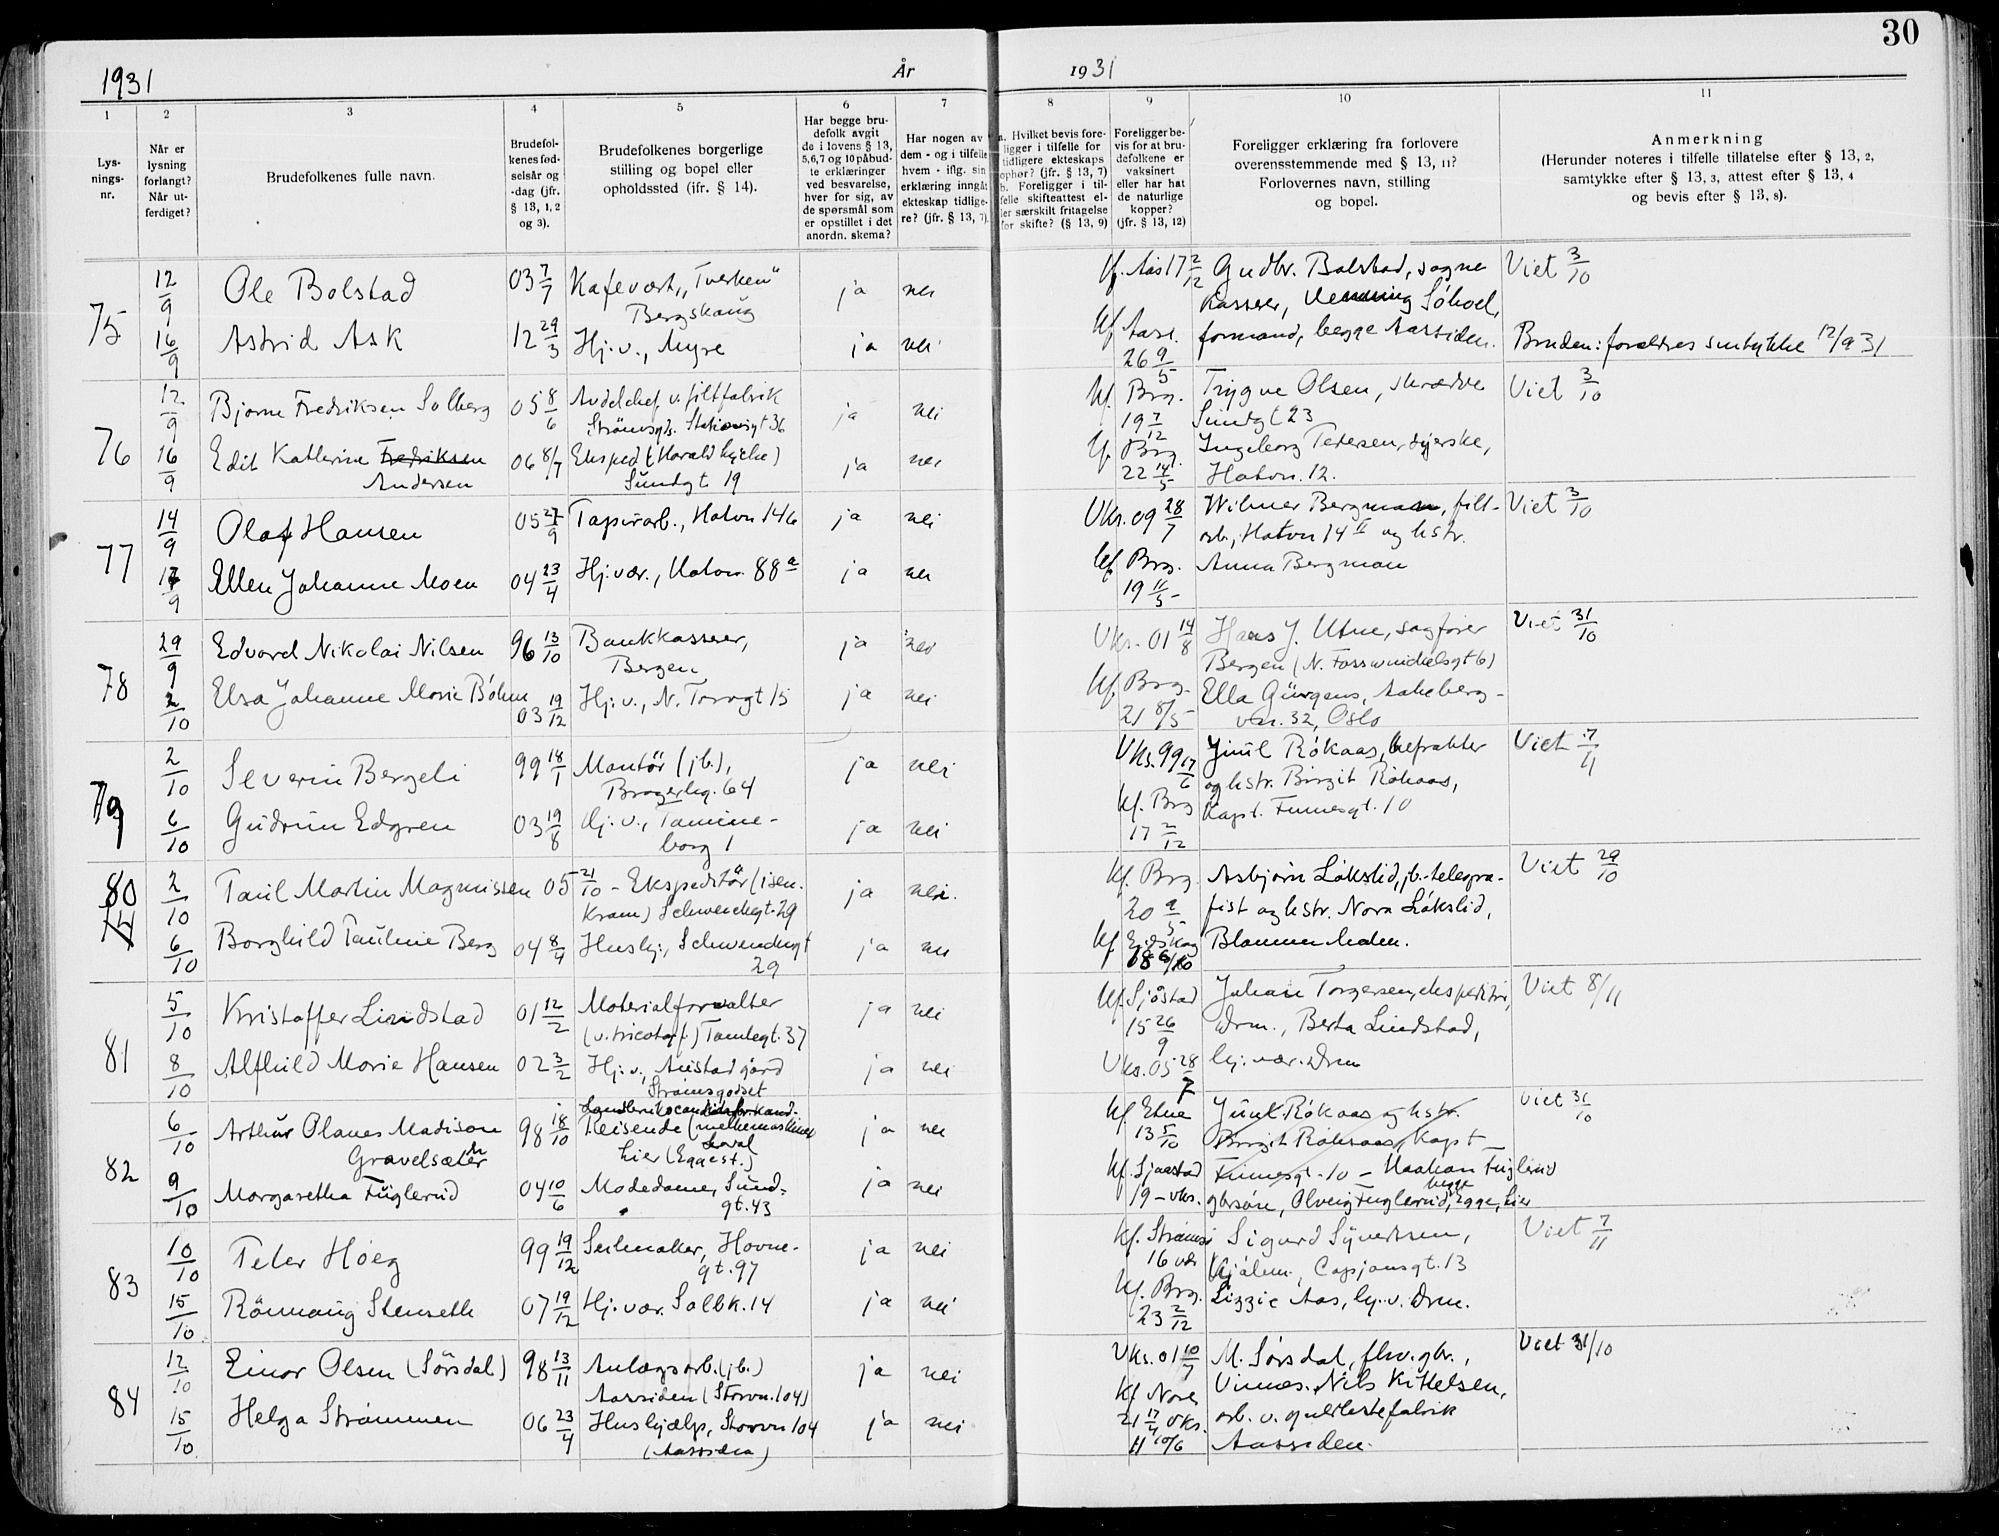 30
1931 År 1931
1 2 3 4 5 6 7 8 9 10 11
Lys-
nings-
nr.
Når er
lysning
forlangt?
Når ut-
ferdiget?
Brudefolkenes fulle navn.
Brudefol-
kenes fød-
selsår og
-dag (jfr.
§ 13, 1, 2
og 3).
Brudefolkenes borgerlige
stilling og bopel eller
opholdssted (ifr. § 14).
Har begge bru-
defolk avgit
de i lovens § 13,
5,6,7 og 10 påbud-
te erklæringer
ved besvarelse,
hver for sig, av
de spørsmål som
er opstillet i det
anordn. skema?
Har nogen av
dem - og i tilfelle
hvem - iflg. sin
erklæring inngått
ekteskap tidlige-
re? (jfr. § 13, 7).
a. Hvilket bevis fore-
ligger i tilfelle for
tidligere ekteskaps
ophør? (jfr. § 13, 7)
b. Foreligger i til-
felle skifteattest el-
ler særskilt fritagelse
for skifte? (§ 13, 9)
Foreligger be-
vis for at bru-
defolkene er
vaksinert
eller har hat
de naturlige
kopper?
(jfr. § 13, 12)
Foreligger erklæring fra forlovere
overensstemmende med § 13, 11?
Forlovernes navn, stilling
og bopel.
Anmerkning
(Herunder noteres i tilfelle tillatelse efter § 13, 2,
samtykke efter § 13, 3, attest efter § 13, 4
og bevis efter § 13, 8).
75
12/9 Ole Bolstad 03 7/7 Kafevert, "Tverken"
Bergskaug ja nei
Kf. Aas 17 2/12 Gudbr. Bolstad, sogne
kasserer, Søhoel,
Viet 3/10
16/9 Astrid Ask 12 29/3 Hj. v., Myre ja nei
26 9/5 formand, begge Aassiden.
Bruden: forældres samtykke 12/9 31
76
12/9 Bjarne Fredriksen Solberg 05 8/6 Avdelchef v. filtfabrik
Strömsgt. Stationsgt 36 ja nei
Kf. Brg. 19 7/12 Trygve Olsen, skrædder
Sundgt 23
Viet 3/10
16/9 Edit Katherine Fredriksen
Andersen 06 8/7 Eksped (Harald Lyche)
Sundgt 19 ja nei
Kf. Brg. 22 14/5 Ingeborg Pedersen, syerske,
Havn. 12.
77
14/9 Olaf Hansen 05 27/9 Papirarb., Havn 146 ja nei
Vks. 09 28/7 Wilmer Bergman, filt-
arb., Havn 14 II og hstr.
Viet 3/10
17/9 Ellen Johanne Moen 04 23/4 Hj. vær., Havn. 88 a ja nei
Kf. Brg. 19 11/5 Anna Bergman
78
29/9 Edvard Nikolai Nilsen 96 13/10 Bankkasserer,
Bergen ja nei
Vks. 01 14/8 Hans J. Utne, sagfører
Bergen
Viet 31/10
2/10 Elsa Johanne Marie Böhm 03 19/12 Hj. v., N. Torvgt 15 ja nei
Kf. Brg. 21 8/5 Ella Gürgens, Aakeberg-
vn. 32, Oslo
79
2/10 Severin Bergeli 99 18/1 Montör (jb.),
Bragerhg. 64 ja nei
Vks. 99 17/6 Juul Røkaas, befrakter
og hstr. Birgit Røkaas,
Viet 7/11
6/10 Gudrun Edgren 03 19/8 Hj. v., Tamine-
borg 1 ja nei
Kf. Brg 17 2/12 Kapt. Finnesgt. 10
80
74
2/10 Paul Martin Magnussen 05 21/10 - Ekspeditör (isen.
kram) Schwenckegt. 29 ja nei.
Kf. Brg. 20 9/5 Asbjørn Løkslid, jb.-telegra-
fist og hstr. Nora Løkslid,
Viet 29/10
6/10 Borghild Pauline Berg 04 8/4 Hushj., Schwenckegt
29 ja nei
Kf. Eidskog 18 6/10
81
5/10 Kristoffer Lindstad 01 12/2 Materialforvalter
(v. tricotagf.) Tomtegt. 37 ja nei
Kf. Sjåstad 15 26/9 Johan Torgersen, ekspeditör,
Drm., Berta Lindstad,
Viet 8/11
8/10 Alfhild Marie Hansen 02 3/2 Hj. v., Austad gård
Strømsgodset ja nei
Vks. 05 28/7 hj. vær. Drm
82
6/10 Arthur Olanes Madison
Gravelsæter 98 18/10
Reisende (melkemaskiner
Laval
Lier (Eggest.) ja nei
Kf. Etne 13 5/10 Juul Røkaas og hstr.
Birgit Røkaas, Kapt
Viet 31/10
9/10 Margaretha Fuglerud 04 10/6 Modedame, Sund-
gt. 43 ja nei
Kf. Sjaastad
19 - vks. Finnesgt. 10 - Haakon Fuglerud
begge
gbrsøn, Olveig Fuglerud, Egge, Lier
83
10/10 Peter Høeg 99 19/12 Seilmaker, Havne-
gt. 97 ja nei
Kf. Strømsø
16 vks Sigurd Syvertsen,
Hjálm., Capjonsgt. 13
Viet 7/11
15/10 Rønnaug Stenseth 07 19/12 Hj. vær. Solbk. 14 ja nei
Kf. Brg. 23 2/12 Lizzie Aas, hj. v. Drm.
84
12/10 Einar Olsen (Sørsdal) 98 13/11 Anlægsarb. (jb.)
Aassiden (Storvn. 104) ja nei
Vks. 01 10/7 M. Sørsdal, fhv. gbr.,
Vinnes. Nils Kittelsen,
Viet 31/10
15/10 Helga Strømmen 06 23/4 Hushjælp, Storvn 104
(Aassiden) ja nei
Kf. Nore
21 17/4 vks.
11 10/6 arb. v. gullistefabrik
Aassiden.